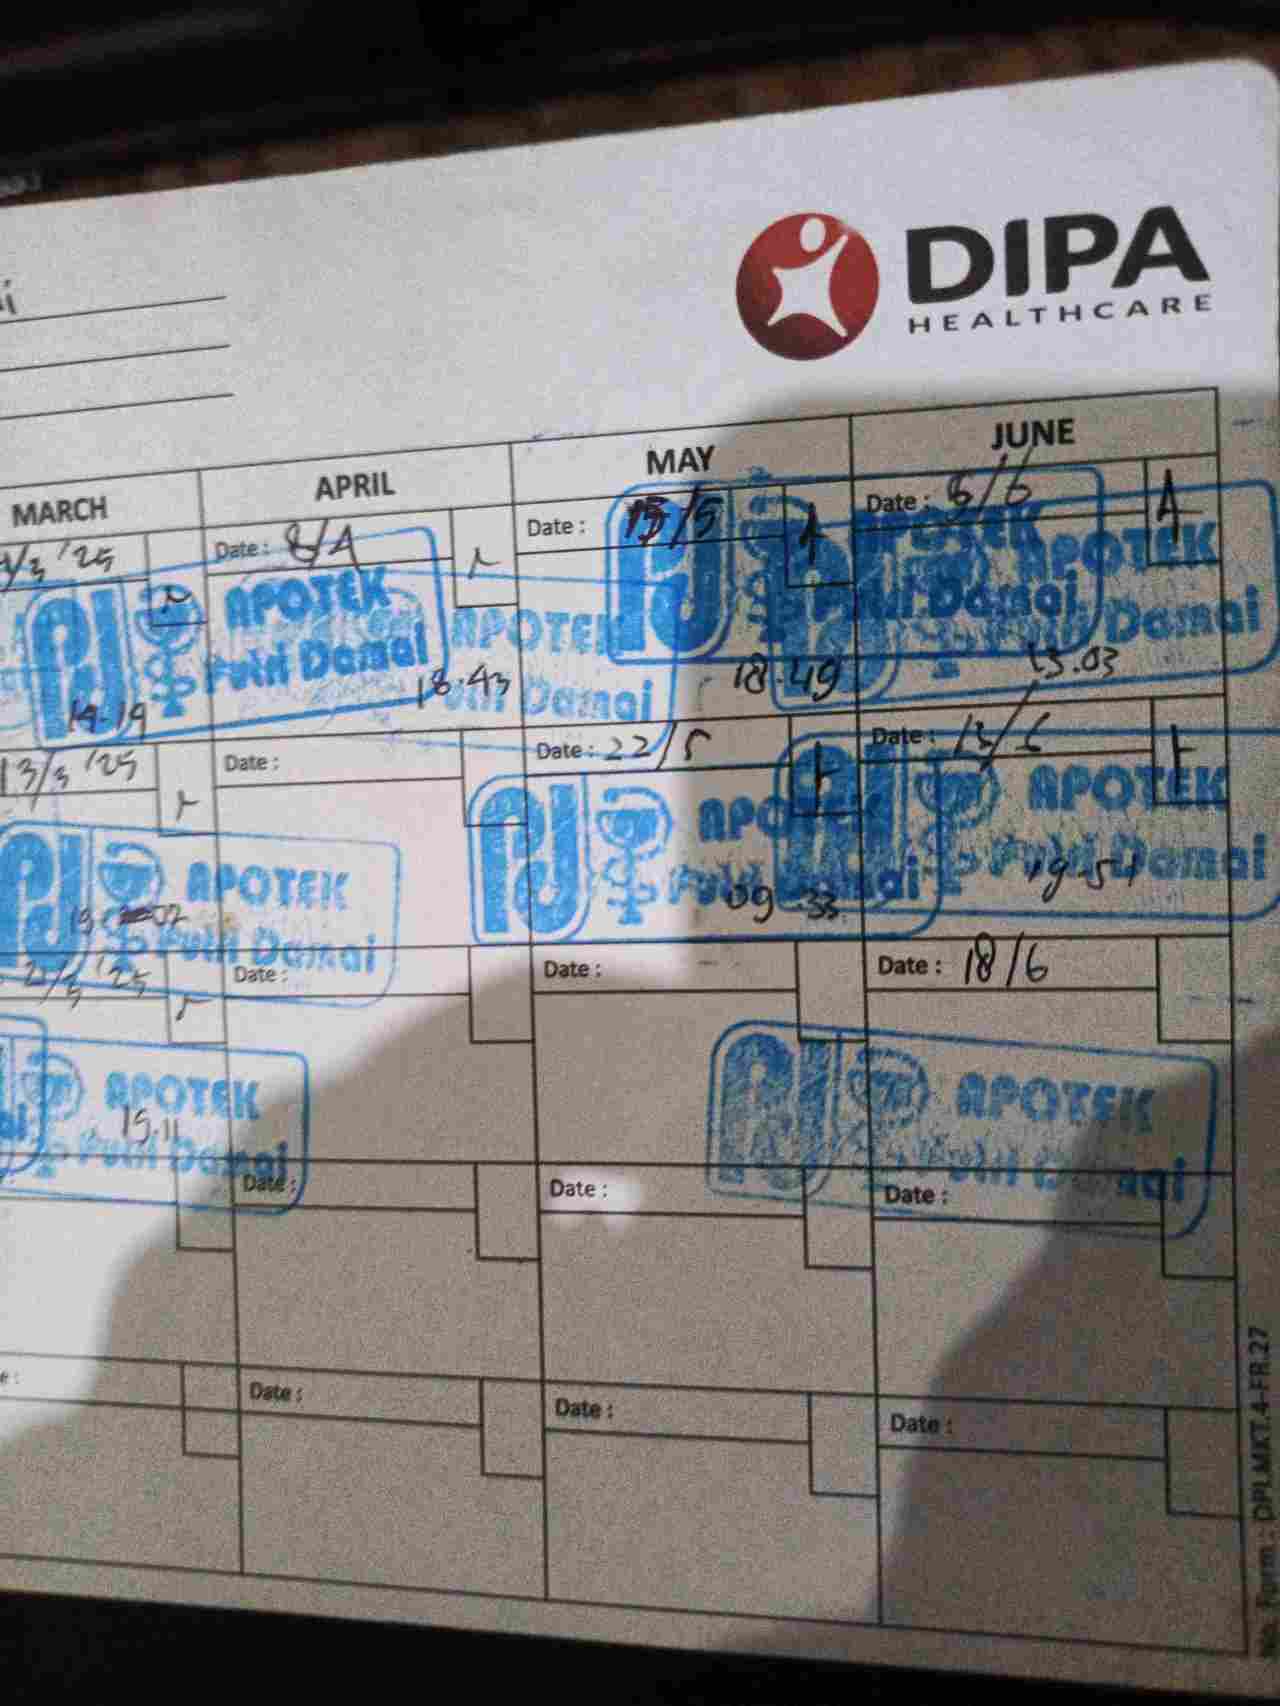 DIPA
HEALTHCARE
MARCH
APRIL
MAY
JUNE
/3 '25
Date : 8/4
Date : 15/5
Date : 6/6
APOTEK
Putri Damai
APOTEK
Putri Damai
APOTEK
Putri Damai
APOTEK
Putri Damai
14.19
18.43
18.49
13.03
13/3 '25
Date :
Date : 22/5
Date : 13/6
APOTEK
Putri Damai
APOTEK
Putri Damai
APOTEK
Putri Damai
09.33
19.51
21/3 '25
Date :
Date :
Date : 18/6
APOTEK
Putri Damai
APOTEK
Putri Damai
15.11
Date :
Date :
Date :
Date :
Date :
Date :
No. Form : DPI.MKT.4-FR.27